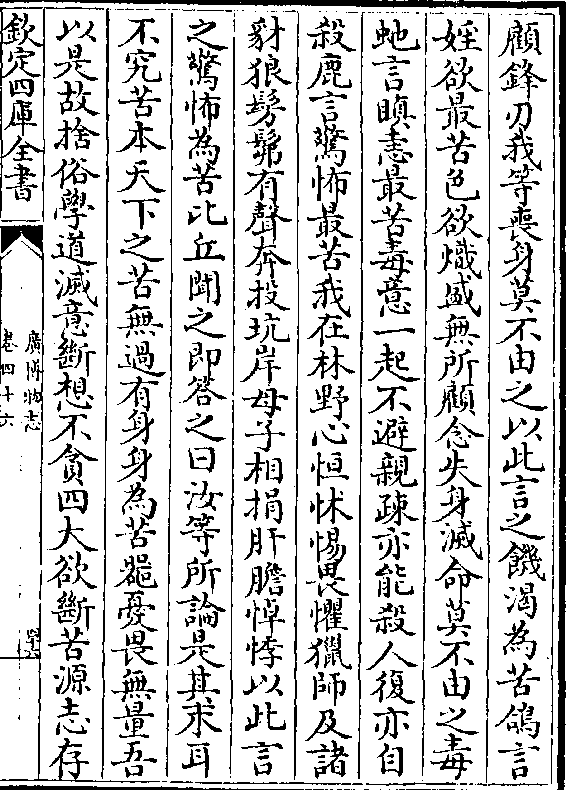 顧鋒刃我等喪身莫不由之以此言之饑渴為苦鴿言
婬欲最苦色欲熾盛無所顧念失身滅命莫不由之毒
虵言瞋恚最苦毒意一起不避親疎亦能殺人復亦自
殺鹿言驚怖最苦我在林野心恒怵惕畏懼獵師及諸
豺狼髣髴有聲奔投坑岸母子相捐肝膽悼悸以此言
之驚怖為苦比丘聞之即答之曰汝等所論是其末耳
不究苦本天下之苦無過有身身為苦噐憂畏無量吾
以是故捨俗學道滅意斷想不貪四大欲斷苦源志存
欽定四庫全書
廣博物志
卷四十六